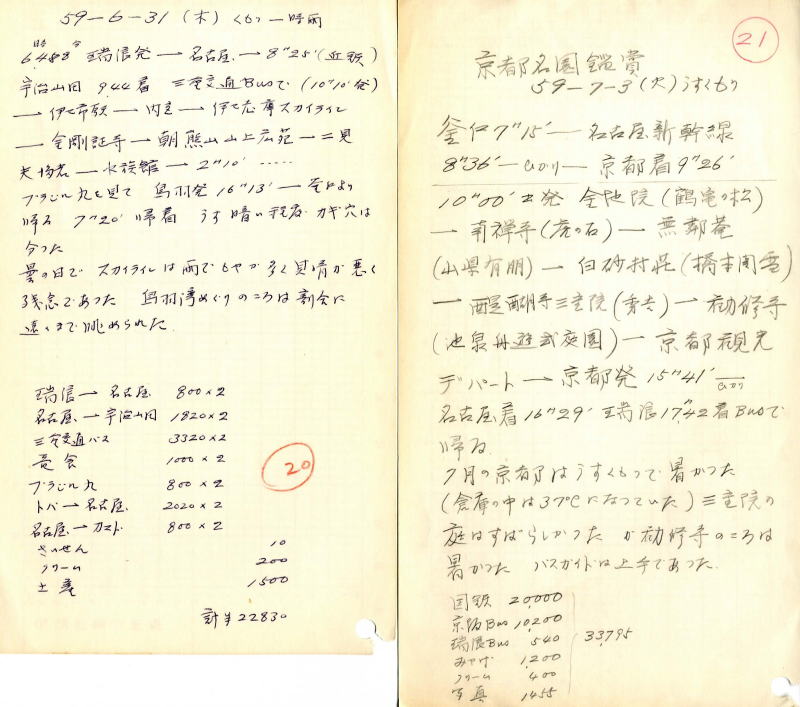 59-6-31 (木) くもり一時雨
6時48分 瑞浪発 → 名古屋 → 8"25' (近鉄)
宇治山田 944着 三重交通Busで (10"10'発)
→ 伊セ市駅 → 内宮 → 伊セ志摩スカイライン
→ 金剛証寺 → 朝熊山山上広苑 → 二見
夫婦岩 → 水族館 → 2"10' ……
ブラジル丸を見て 鳥羽発 16"13' →
帰る 7"20' 帰着 うす暗い程度 カギ穴は
分つた
曇の日で スカイラインは雨でもやが多く見晴が悪く
残念であつた 鳥羽湾めぐりのころは割合に
遠くまで眺められた.
瑞浪→名古屋 800×2
名古屋→宇治山田 1820×2
三重交通バス 3320×2
昼食 1000×2
ブラジル丸 800×2
トバ→名古屋 2020×2
名古屋→カマド 800×2
さいせん 10
クリーム 200
土産 1500
計¥22830
20
21
京都名園鑑賞
59-7-3 (火) うすくもり
釜戸7"15' — 名古屋新幹線
8"36' — ひかり — 京都着9"26'
10"00'出発 金地院 (鶴亀の松)
→ 南禅寺 (虎の石) → 無鄰菴
(山県有朋) → 白砂村荘 (橋本関雪)
→ 醍醐寺三宝院 (秀吉) → 勧修寺
(池泉舟遊式庭園) — 京都観光
デパート → 京都発 15"41' ひかり
名古屋着16"29' 瑞浪17"42着Busで
帰る.
7月の京都はうすくもつて暑かつた
(倉庫の中は37℃になつていた) 三宝院の
庭はすばらしかつた が勧修寺のころは
暑かつた バスガイドは上手であつた.
国鉄 20,000
京阪Bus 10,200
瑞浪Bus 540
みやげ 1,200
クリーム 400
写真 1455
33,795